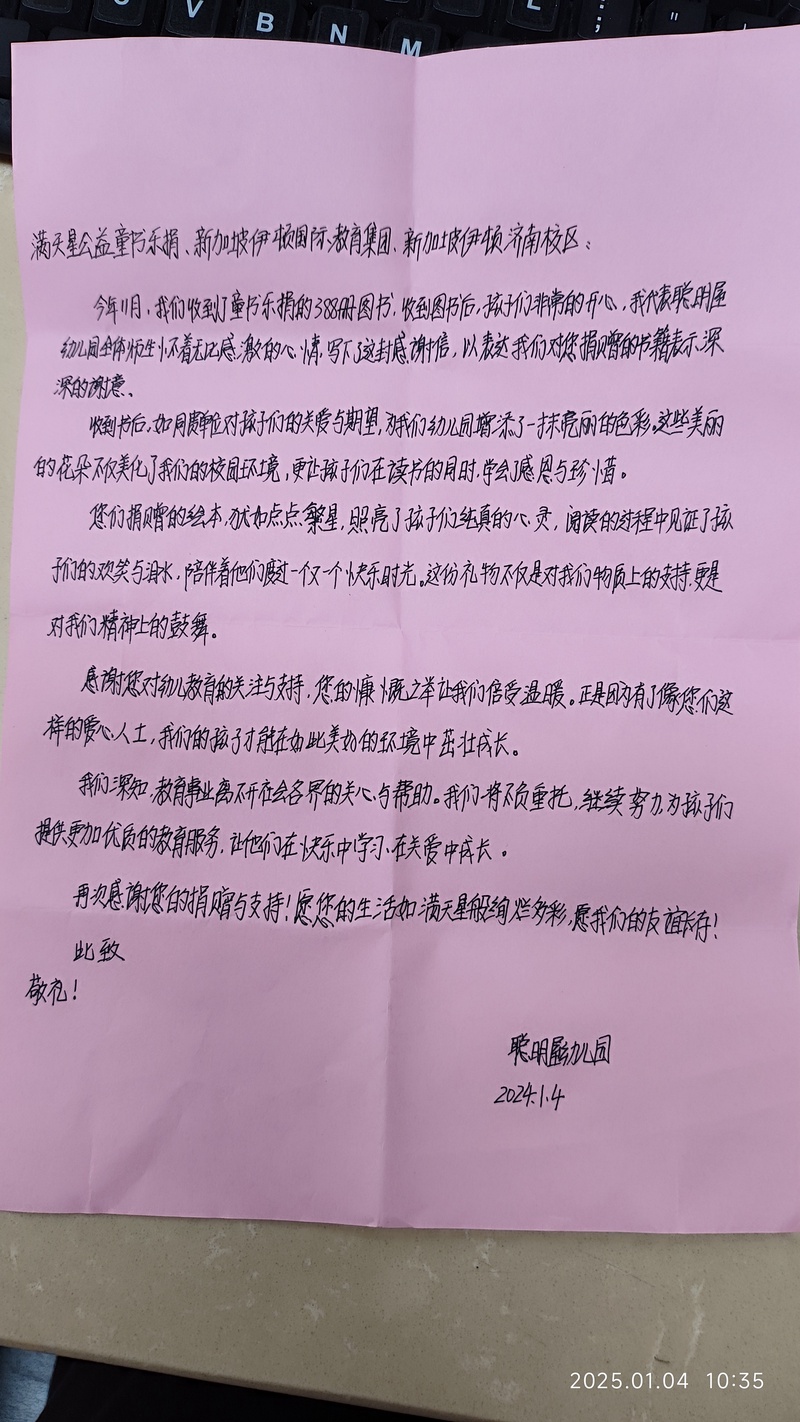 V B N M L ; "
满天星公益童书乐捐、新加坡伊顿国际教育集团、新加坡伊顿济南校区：
今年11月，我们收到了童书乐捐的388册图书，收到图书后，孩子们非常的开心，我代表聪明屋
幼儿园全体师生怀着无比感激的心情，写下了这封感谢信，以表达我们对您捐赠的书籍表示深
深的谢意、
收到书后，如同贵单位对孩子们的关爱与期望，为我们幼儿园增添了一抹亮丽的色彩。这些美丽
的花朵不仅美化了我们的校园环境，更让孩子们在读书的同时，学会了感恩与珍惜。
您们捐赠的绘本，犹如点点繁星，照亮了孩子们纯真的心灵，阅读的过程中见证了孩
子们的欢笑与泪水，陪伴着他们度过一个又一个快乐时光。这份礼物不仅是对我们物质上的支持，更是
对我们精神上的鼓舞。
感谢您对幼儿教育的关注与支持，您的慷慨之举让我们倍受温暖。正是因为有了像您们这
样的爱心人士，我们的孩子才能在如此美好的环境中茁壮成长。
我们深知，教育事业离不开社会各界的关心与帮助。我们将不负重托，继续努力，为孩子们
提供更加优质的教育服务，让他们在快乐中学习，在关爱中成长。
再次感谢您的捐赠与支持！愿您的生活如满天星般绚烂多彩，愿我们的友谊长存！
此致
敬礼！
聪明屋幼儿园
2024.1.4
2025.01.04 10:35